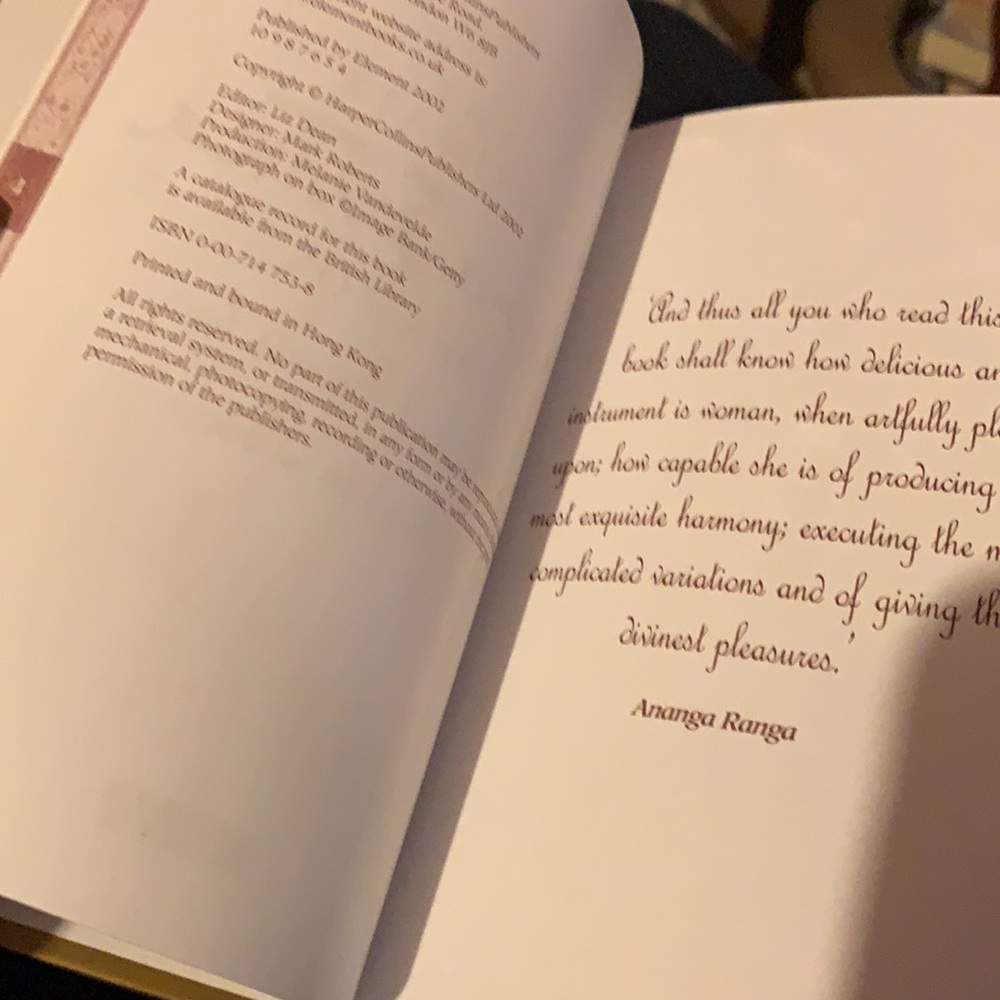 Road,
London W6 8JB
website address is:
elementbooks.co.uk
Published by Element 2002
10 9 8 7 6 5 4
Copyright © HarperCollinsPublishers Ltd 2002
Editor: Liz Dean
Designer: Mark Roberts
Production: Melanie Vandevelde
Photograph on box ©Image Bank/Getty
A catalogue record for this book
is available from the British Library
ISBN 0-00-714 753-8
Printed and bound in Hong Kong
All rights reserved. No part of this publication may be
a retrieval system, or transmitted, in any form or by any
mechanical, photocopying, recording or otherwise, without
permission of the publishers.
'And thus all you who read this
book shall know how delicious an
instrument is woman, when artfully
upon; how capable she is of producing
most exquisite harmony; executing the
complicated variations and of giving
divinest pleasures.'
Ananga Ranga